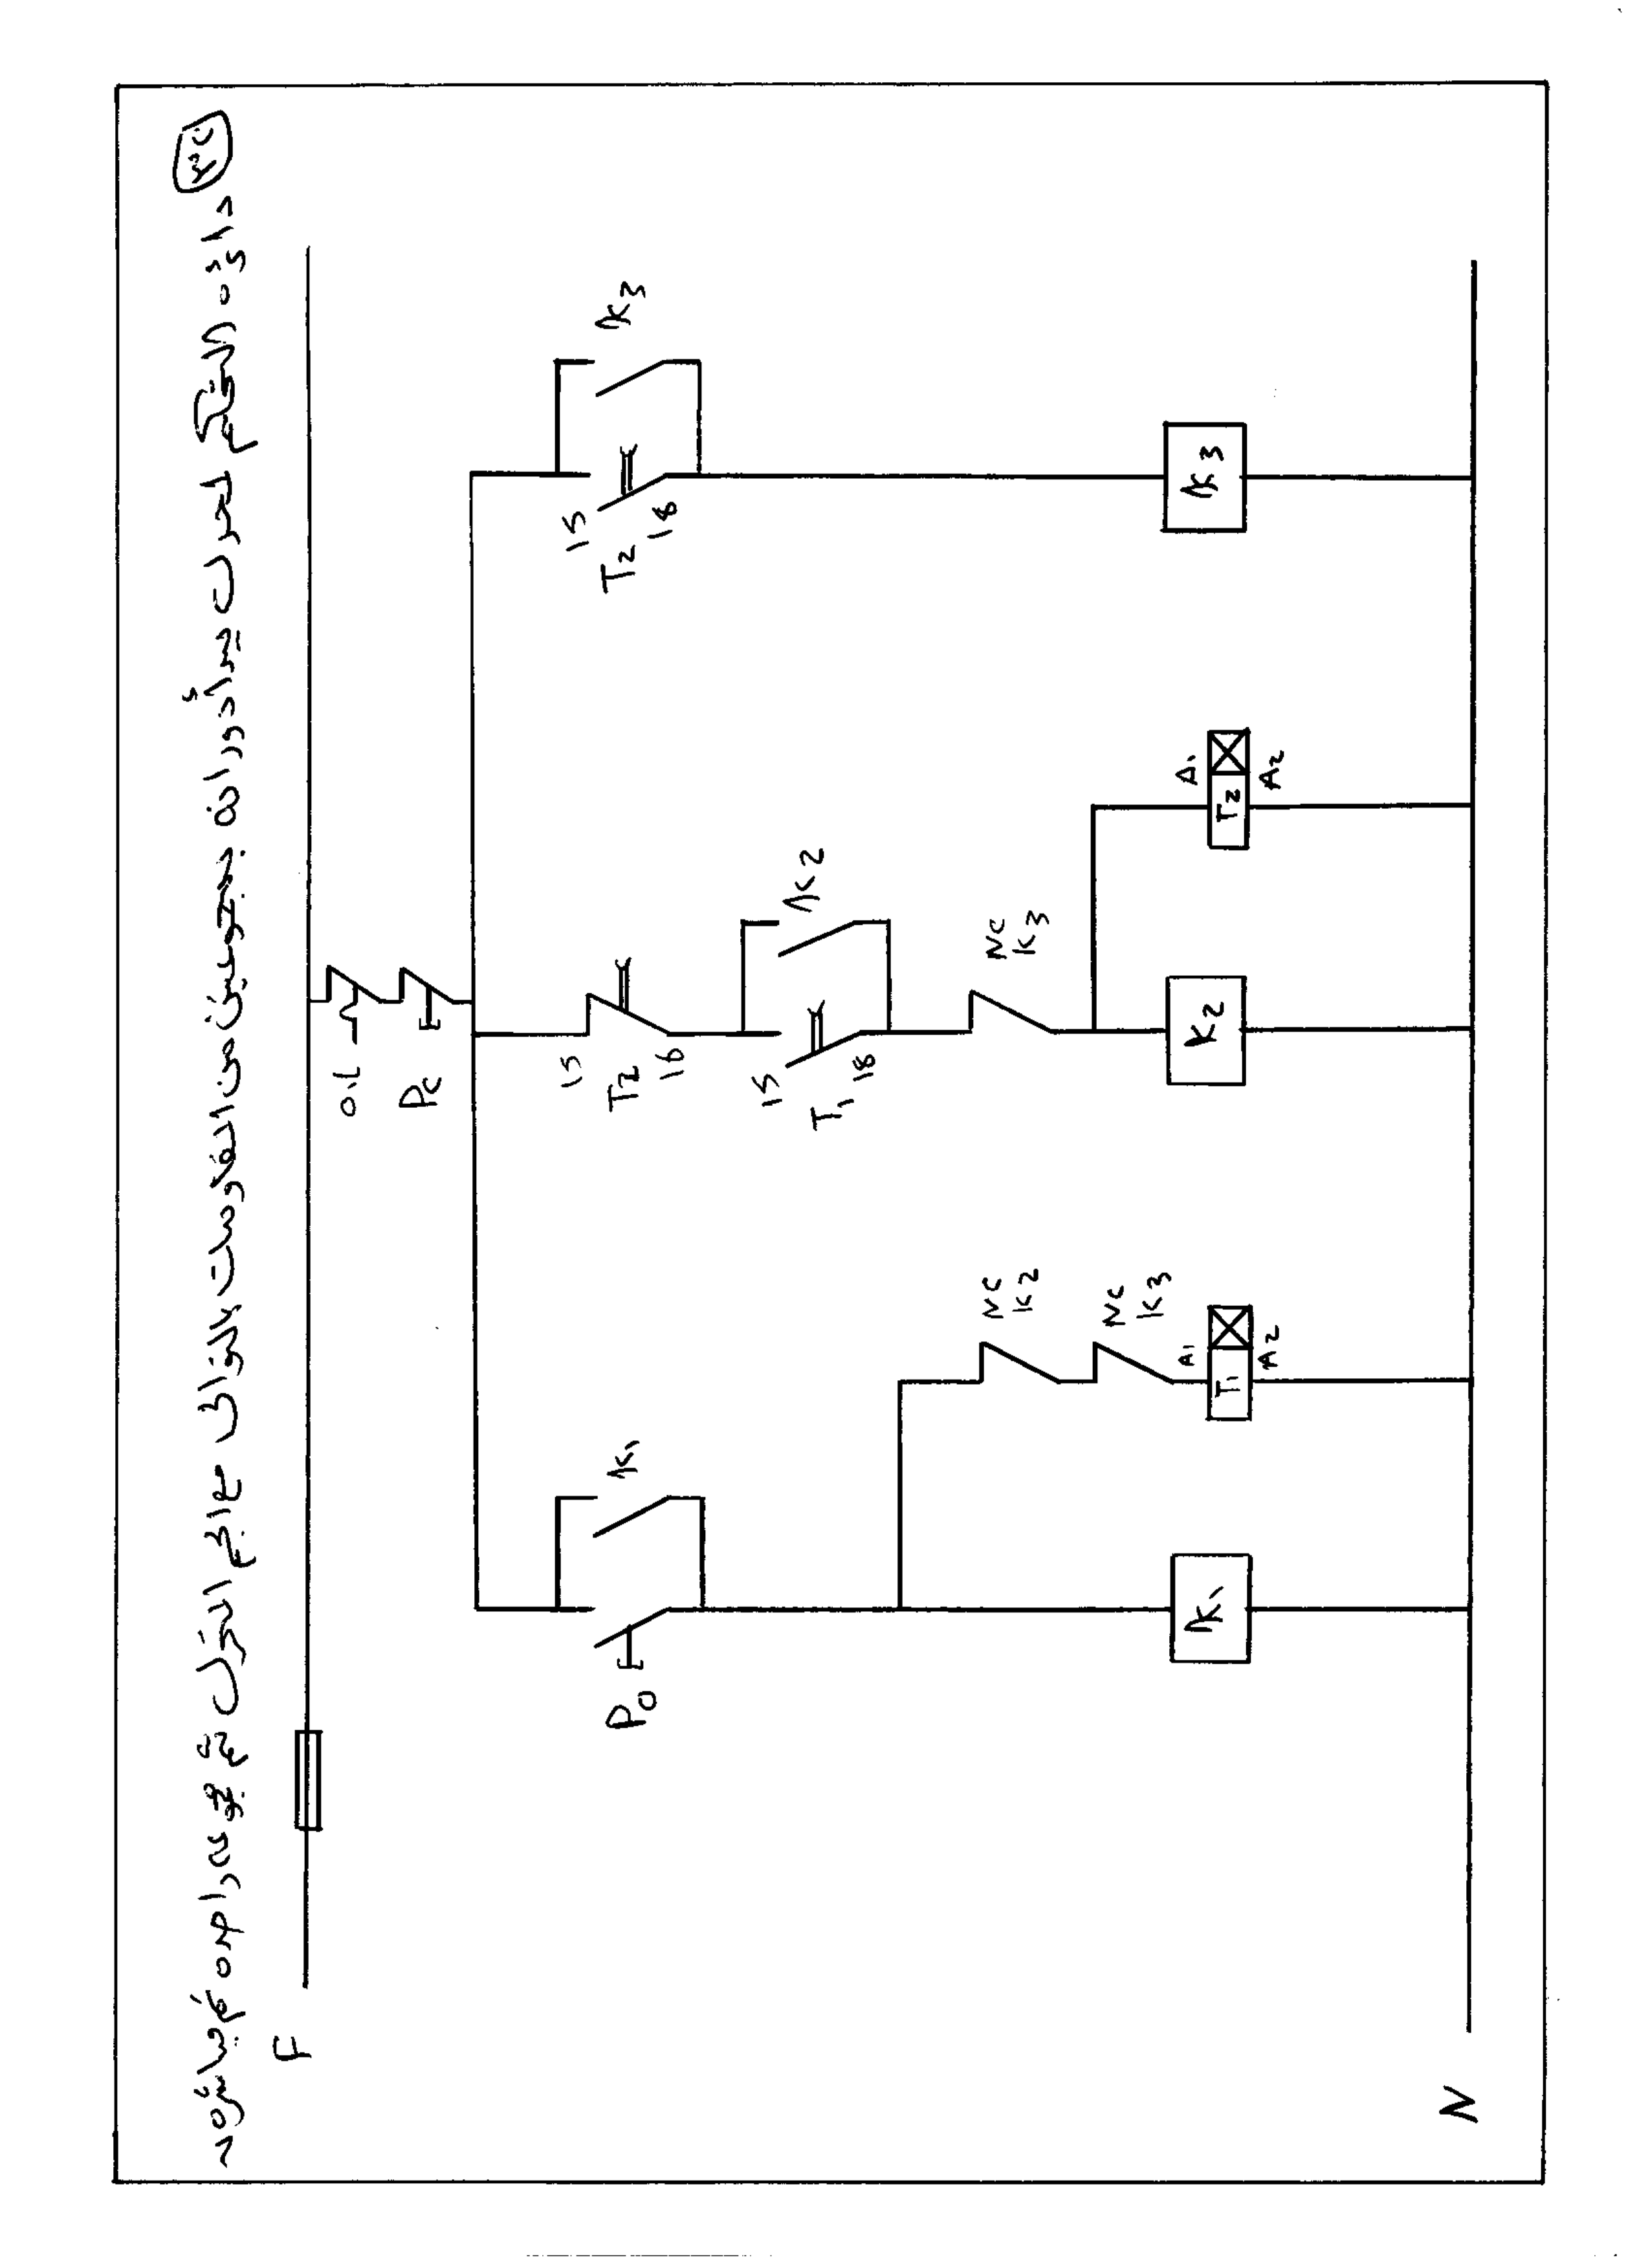 دائره التحكم لمحرك يبدأ دورانه بمجموعتين من المقاومات بالتوالى مع ثم مجموعه واحده ثم مباشره
F
O.L
Pc
Po
K1
15
T2
16
15
T2
18
K3
15
T1
18
K2
NC
K2
NC
K3
NC
K3
K1
A1
T1
A2
K2
A1
T2
A2
K3
N